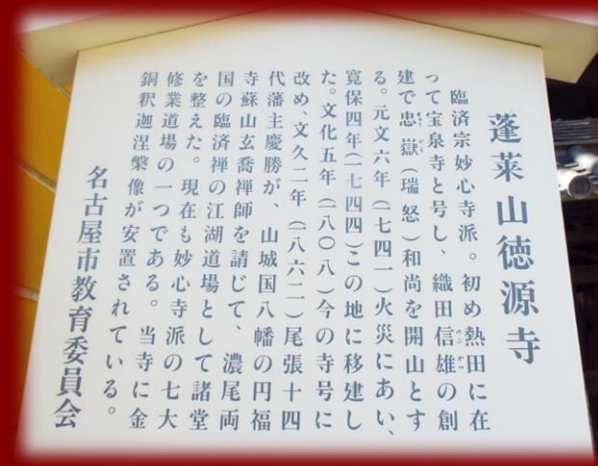 蓬莱山徳源寺
臨済宗妙心寺派。初め熱田に在
って宝泉寺と号し、織田信雄の創
建で忠嶽(瑞恕)和尚を開山とす
る。元文六年(一七四一)火災にあい、
寛保四年(一七四四)この地に移建し
た。文化五年(一八〇八)今の寺号に
改め、文久二年(一八六二)尾張十四
代藩主慶勝が、山城国八幡の円福
寺蘇山玄喬禅師を請じて、濃尾両
国の臨済禅の江湖道場として諸堂
を整えた。現在も妙心寺派の七大
修業道場の一つである。当寺に金
銅釈迦涅槃像が安置されている。
名古屋市教育委員会